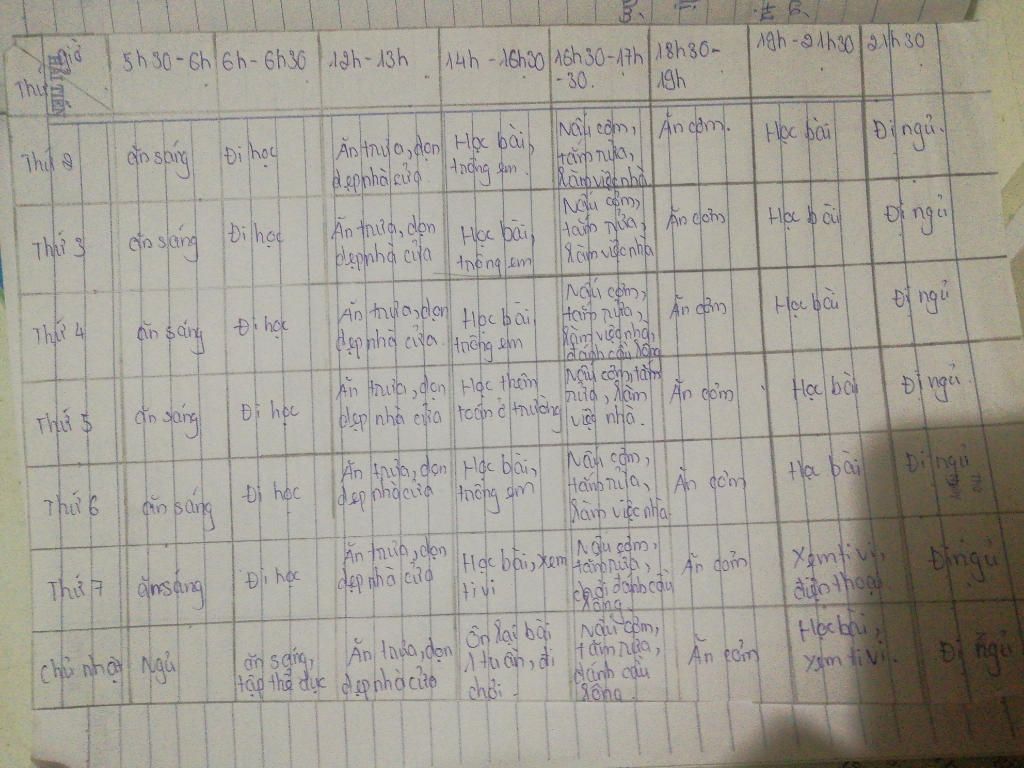 Giờ
Thứ
HẢI TIẾN
5h30-6h
6h-6h30
12h-13h
14h-16h30
16h30-17h
-30.
18h30-
19h
19h-21h30
21h30
Thứ 2
ăn sáng
Đi học
Ăn trưa, dọn
dẹp nhà cửa.
Học bài,
trông em.
Nấu cơm,
tắm rửa,
làm việc nhà
Ăn cơm.
Học bài
Đi ngủ.
Thứ 3
ăn sáng
Đi học
Ăn trưa, dọn
dẹp nhà cửa
Học bài,
trông em
Nấu cơm,
tắm rửa,
làm việc nhà
Ăn cơm
Học bài
Đi ngủ
Thứ 4
ăn sáng
Đi học
Ăn trưa, dọn
dẹp nhà cửa.
Học bài,
trông em
Nấu cơm,
tắm rửa,
làm việc nhà,
đánh cầu lông
Ăn cơm
Học bài
Đi ngủ
Thứ 5
ăn sáng
Đi học
Ăn trưa, dọn
dẹp nhà cửa
Học thêm
toán ở trường
Nấu cơm, tắm
rửa, làm
việc nhà.
Ăn cơm
Học bài
Đi ngủ.
Thứ 6
ăn sáng
Đi học
Ăn trưa, dọn
dẹp nhà cửa
Học bài,
trông em
Nấu cơm,
tắm rửa,
làm việc nhà
Ăn cơm
Học bài
Đi ngủ
Thứ 7
ăn sáng
Đi học
Ăn trưa, dọn
dẹp nhà cửa
Học bài, xem
ti vi
Nấu cơm,
tắm rửa,
chơi đánh cầu
lông.
Ăn cơm
Xem ti vi,
điện thoại
Đi ngủ
Chủ nhật
Ngủ
ăn sáng,
tập thể dục
Ăn trưa, dọn
dẹp nhà cửa
Ôn lại bài
1 tuần, đi
chơi.
Nấu cơm,
tắm rửa,
đánh cầu
lông.
Ăn cơm
Học bài,
xem ti vi.
Đi ngủ